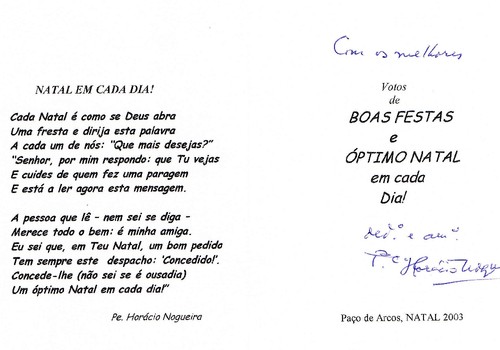 NATAL EM CADA DIA!
Cada Natal é como se Deus abra
Uma fresta e dirija esta palavra
A cada um de nós: "Que mais desejas?"
"Senhor, por mim respondo: que Tu vejas
E cuides de quem fez uma paragem
E está a ler agora esta mensagem.
A pessoa que lê - nem sei se diga -
Merece todo o bem: é minha amiga.
Eu sei que, em Teu Natal, um bom pedido
Tem sempre este despacho: 'Concedido!'.
Concede-lhe (não sei se é ousadia)
Um óptimo Natal em cada dia!"
Pe. Horácio Nogueira
Com os melhores
Votos
de
BOAS FESTAS
e
ÓPTIMO NATAL
em cada
Dia!
P.e Horácio
Paço de Arcos, NATAL 2003